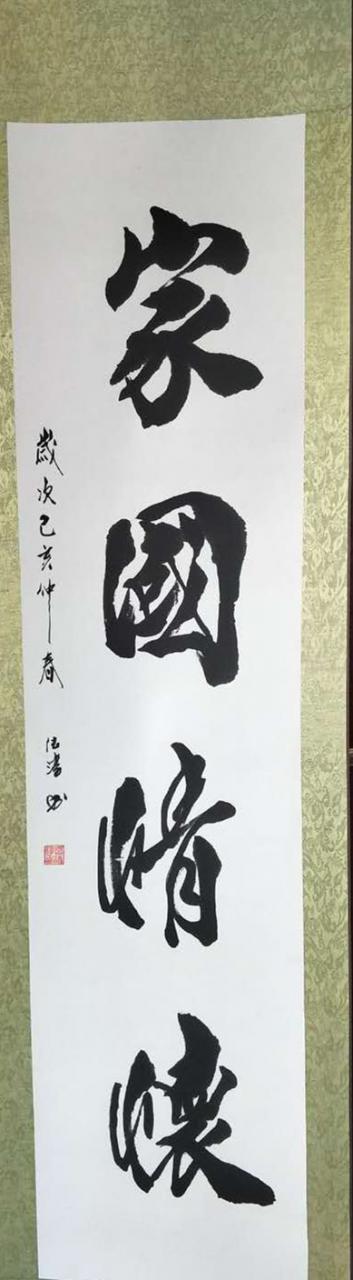 家國情懷
歲次己亥仲春